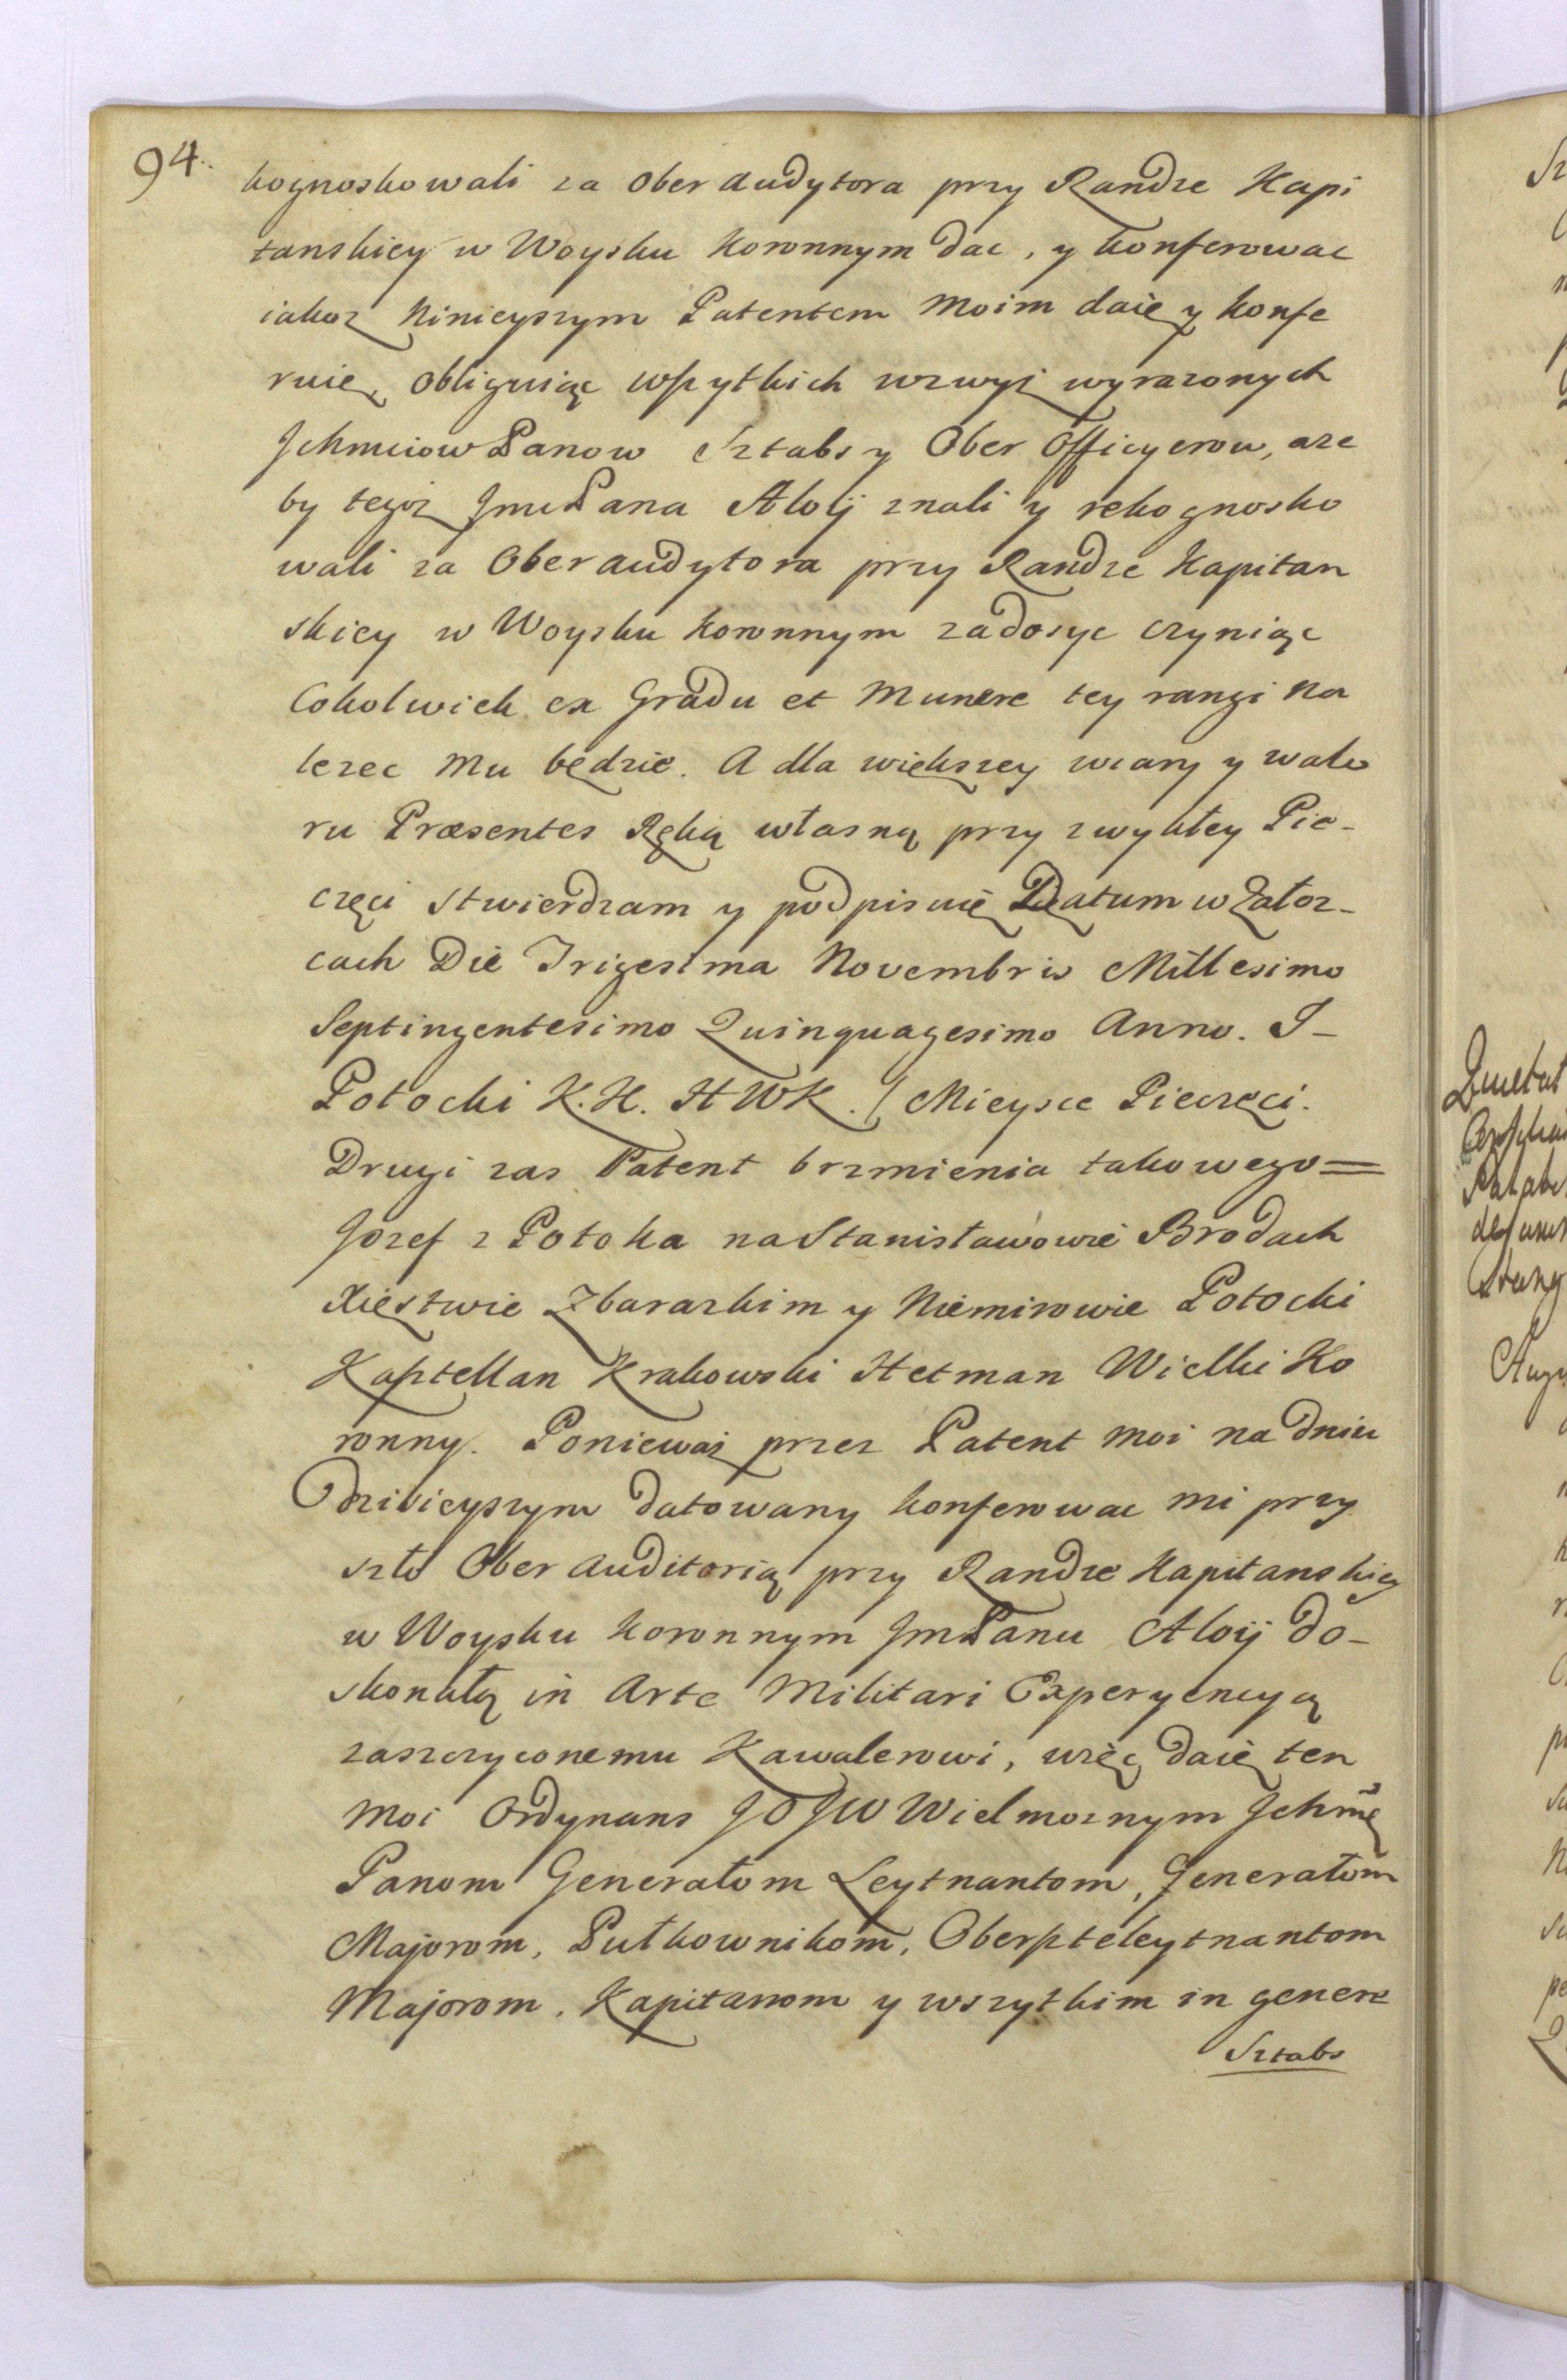 94.
kognoskowali za Ober Audytora przy Randze Kapi
tanskiey w Woysku Koronnym dac, y konferowac
iakoz Ninieyszym Patentem Moim daię y konfe
ruię, obliguiąc wszytkich wzwyż wyrazonych
Jchmciow Panow Sztabs y Ober Officyerow, aze
by tegoż Jmci Pana Aloij znali y rekognosko
wali za Oberaudytora przy Randze Kapitan
skiey w Woysku Koronnym zadosyc czyniąc
Cokolwiek ex Gradu et Munere tey rangi Na
lezec Mu będzie. A dla większey wiary y walo
ru Præsentes Ręką własną przy zwykłey Pie-
częci stwierdzam y podpisuię Datum w Załoz-
cach Die Trigesima Novembris Millesimo
Septingentesimo Quinquagesimo Anno. J-
Potocki K. K. H W K. / Mieysce Pieczęci.
Drugi zas Patent brzmienia takowego=
Jozef z Potoka na Stanisławowie Brodach
Xięstwie Zbarazkim y Niemirowie Potocki
Kasztellan Krakowski Hetman Wielki Ko
ronny. Poniewaz przez Patent moi na dniu
Dzisieyszym datowany konferowac mi przy
szło Ober Auditorią przy Randze Kapitanskiey
w Woysku Koronnym Jm Panu Aloij do-
skonałą in Arte Militari Experyencyą
zaszczyconemu Kawalerowi, więc daię ten
Moi Ordynans JO JW Wielmoznym Jchmę
Panom Generałom Leytnantom, Generałom
Majorom, Pułkownikom, Oberszteleytnantom
Majorom, Kapitanom y wszytkim in genere
Sztabs